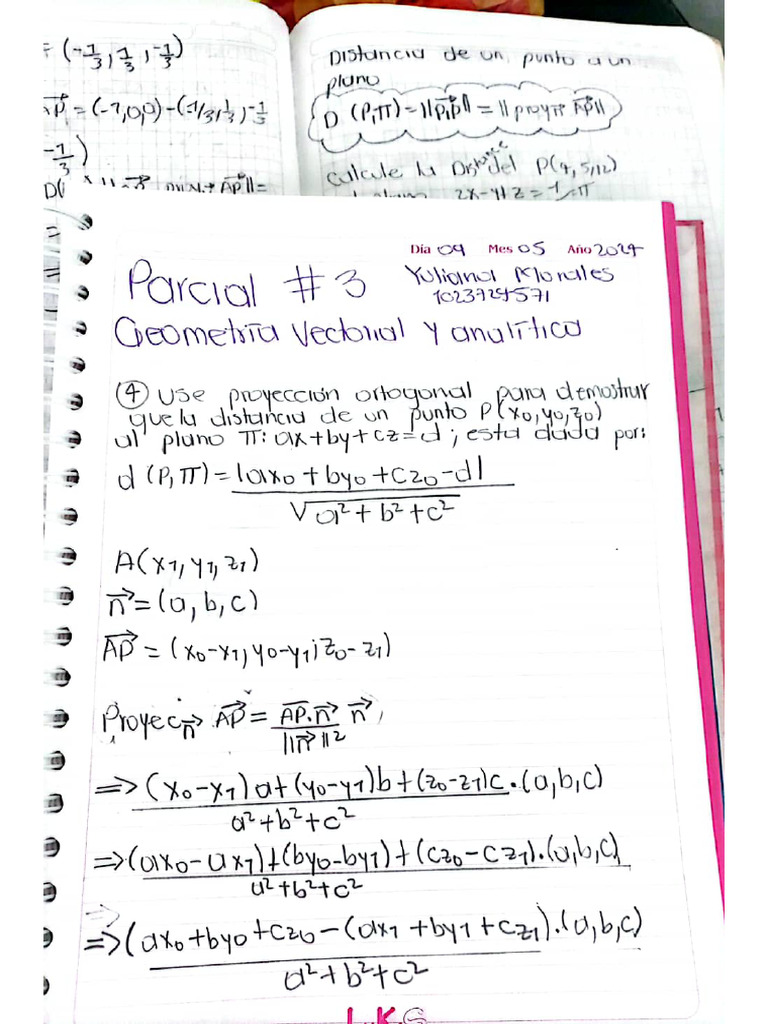 = (-1/3, 1/3, -1/3)
AP = (-1,0,0) - (-1/3, 1/3, -1/3
-1/3)
Distancia de un punto a un
plano
D (P,π) = ||P₁P|| = || proyπ AP ||
Calcule la Distance del P(4,5,12)
2x-y+z=1 π
Día 09 Mes 05 Año 2024
Parcial # 3 Yuliana Morales
1023724571
Geometría Vectorial y analítica
④ Use proyección ortogonal para demostrar
que la distancia de un punto P(x₀,y₀,z₀)
al plano π: ax+by+cz=d ; esta dada por:
d (P,π) = |ax₀ + by₀ + cz₀ - d|
√a² + b² + c²
A(x₁, y₁, z₁)
n⃗ = (a, b, c)
AP⃗ = (x₀-x₁, y₀-y₁; z₀-z₁)
Proyec n⃗ AP⃗ = AP⃗.n⃗ n⃗
||n⃗||²
=> (x₀-x₁)a+(y₀-y₁)b+(z₀-z₁)c.(a,b,c)
a²+b²+c²
=>(ax₀-ax₁)+(by₀-by₁)+(cz₀-cz₁).(a,b,c)
a²+b²+c²
=>(ax₀+by₀+cz₀-(ax₁+by₁+cz₁).(a,b,c)
a²+b²+c²